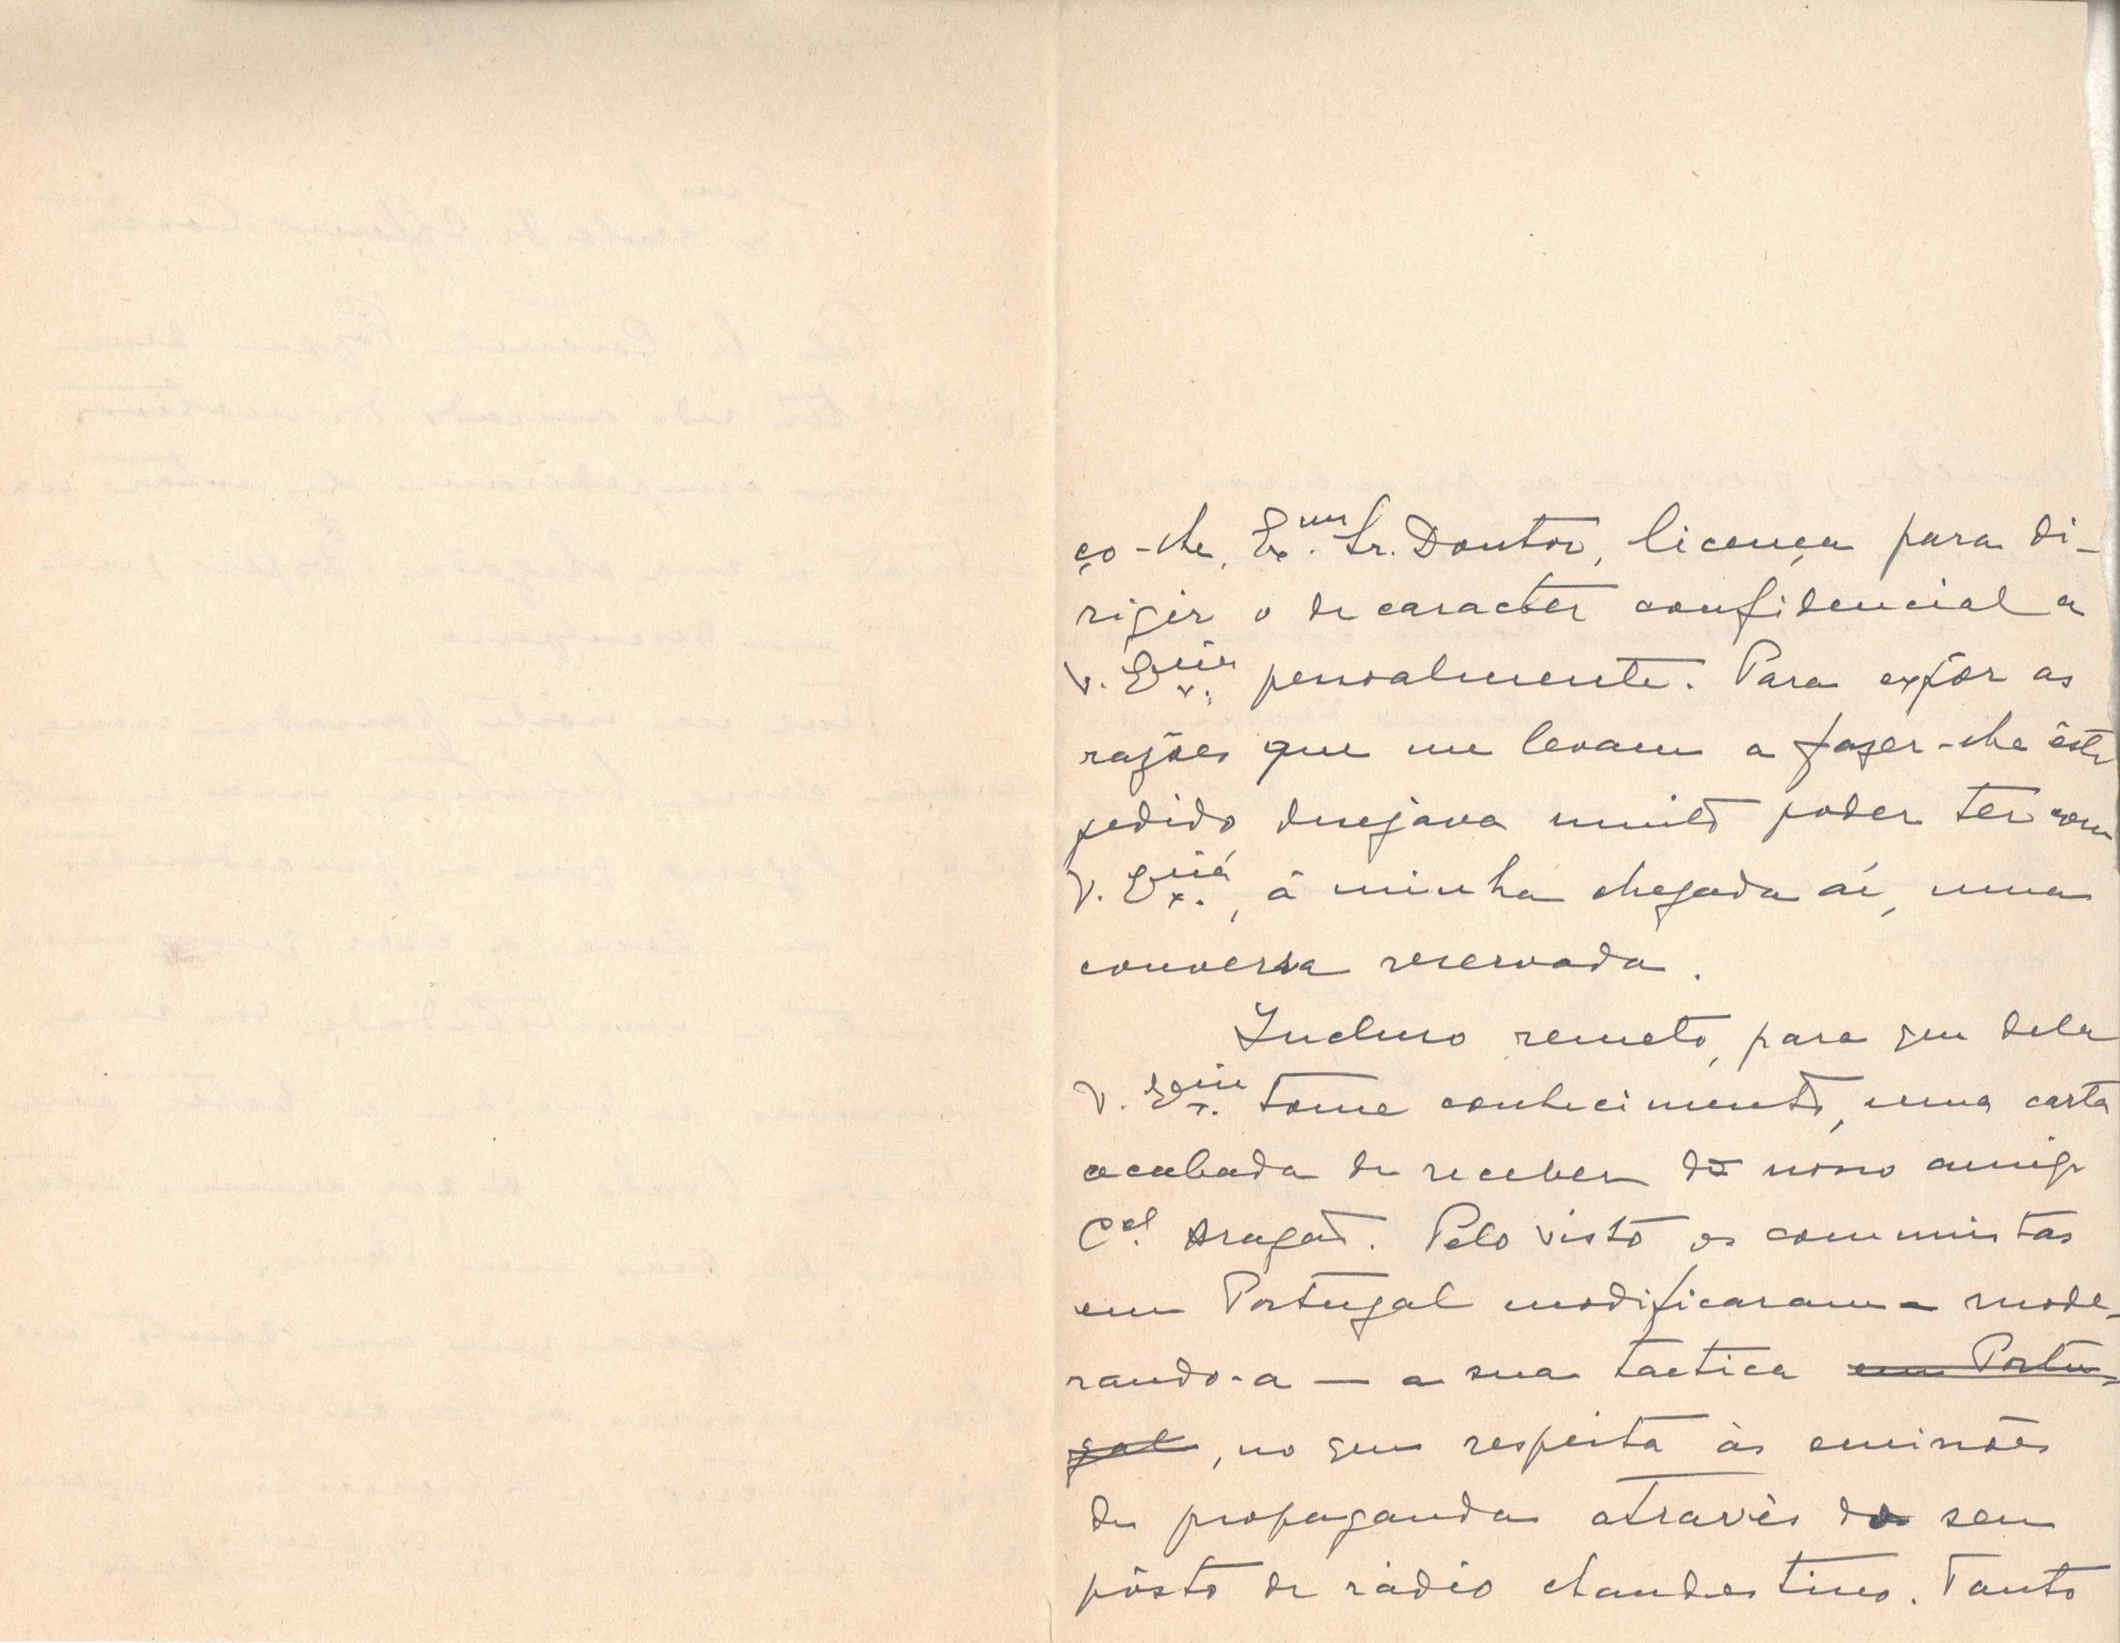 ço-lhe, Ex.mo Sr. Doutor, licença para di-
rigir o de caracter confidencial a
V. Ex.cia pessoalmente. Para expôr as
razões que me levam a fazer-lhe êste
pedido desejava muito poder ter com
V. Ex.ciá, á minha chegada aí, uma
conversa reservada.
Incluso remeto, para que dela
V. Ex.cia tome conhecimento, uma carta
acabada de receber do nosso amigo
C.el Aragão. Pelo visto os comunistas
em Portugal modificaram — mode-
rando-a — a sua tactica em Portu-
gal, no que respeita às emissões
de propaganda atravès do seu
pôsto de ràdio clandestino. Tanto